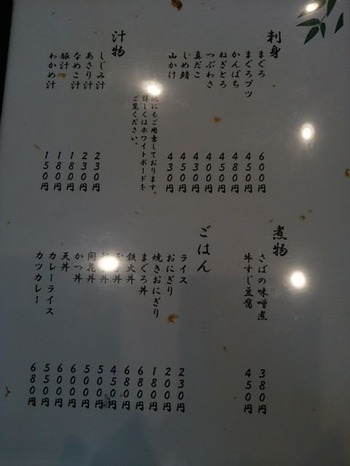 刺身
まぐろ 600円
まぐろブツ 450円
かんぱち 480円
ねぎとろ
つぶわさ 400円
真だこ 450円
しめ鯖 400円
山かけ 430円
にもご用意しております。
詳しくはホワイトボードを
ご覧ください。
汁物
しじみ汁 230円
あさり汁 230円
なめこ汁 180円
豚汁 180円
わかめ汁 150円
煮物
さばの味噌煮 380円
牛すじ豆腐 450円
ごはん
ライス 230円
おにぎり 200円
焼きおにぎり 180円
まぐろ丼 680円
鉄火丼
かつ丼
天丼 600円
カレーライス 550円
カツカレー 680円